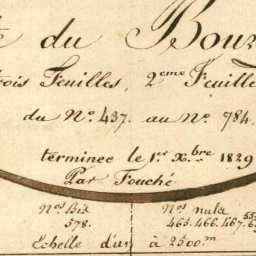 du Bouz
rois Feuilles, 2eme Feuille
du No. 437. au No. 784.
terminée le 1er Xbre 1829
Par Fouché
Nos. Bis
578.
Nos. nuls
465. 466. 467.
Echelle d'un à 2500.m